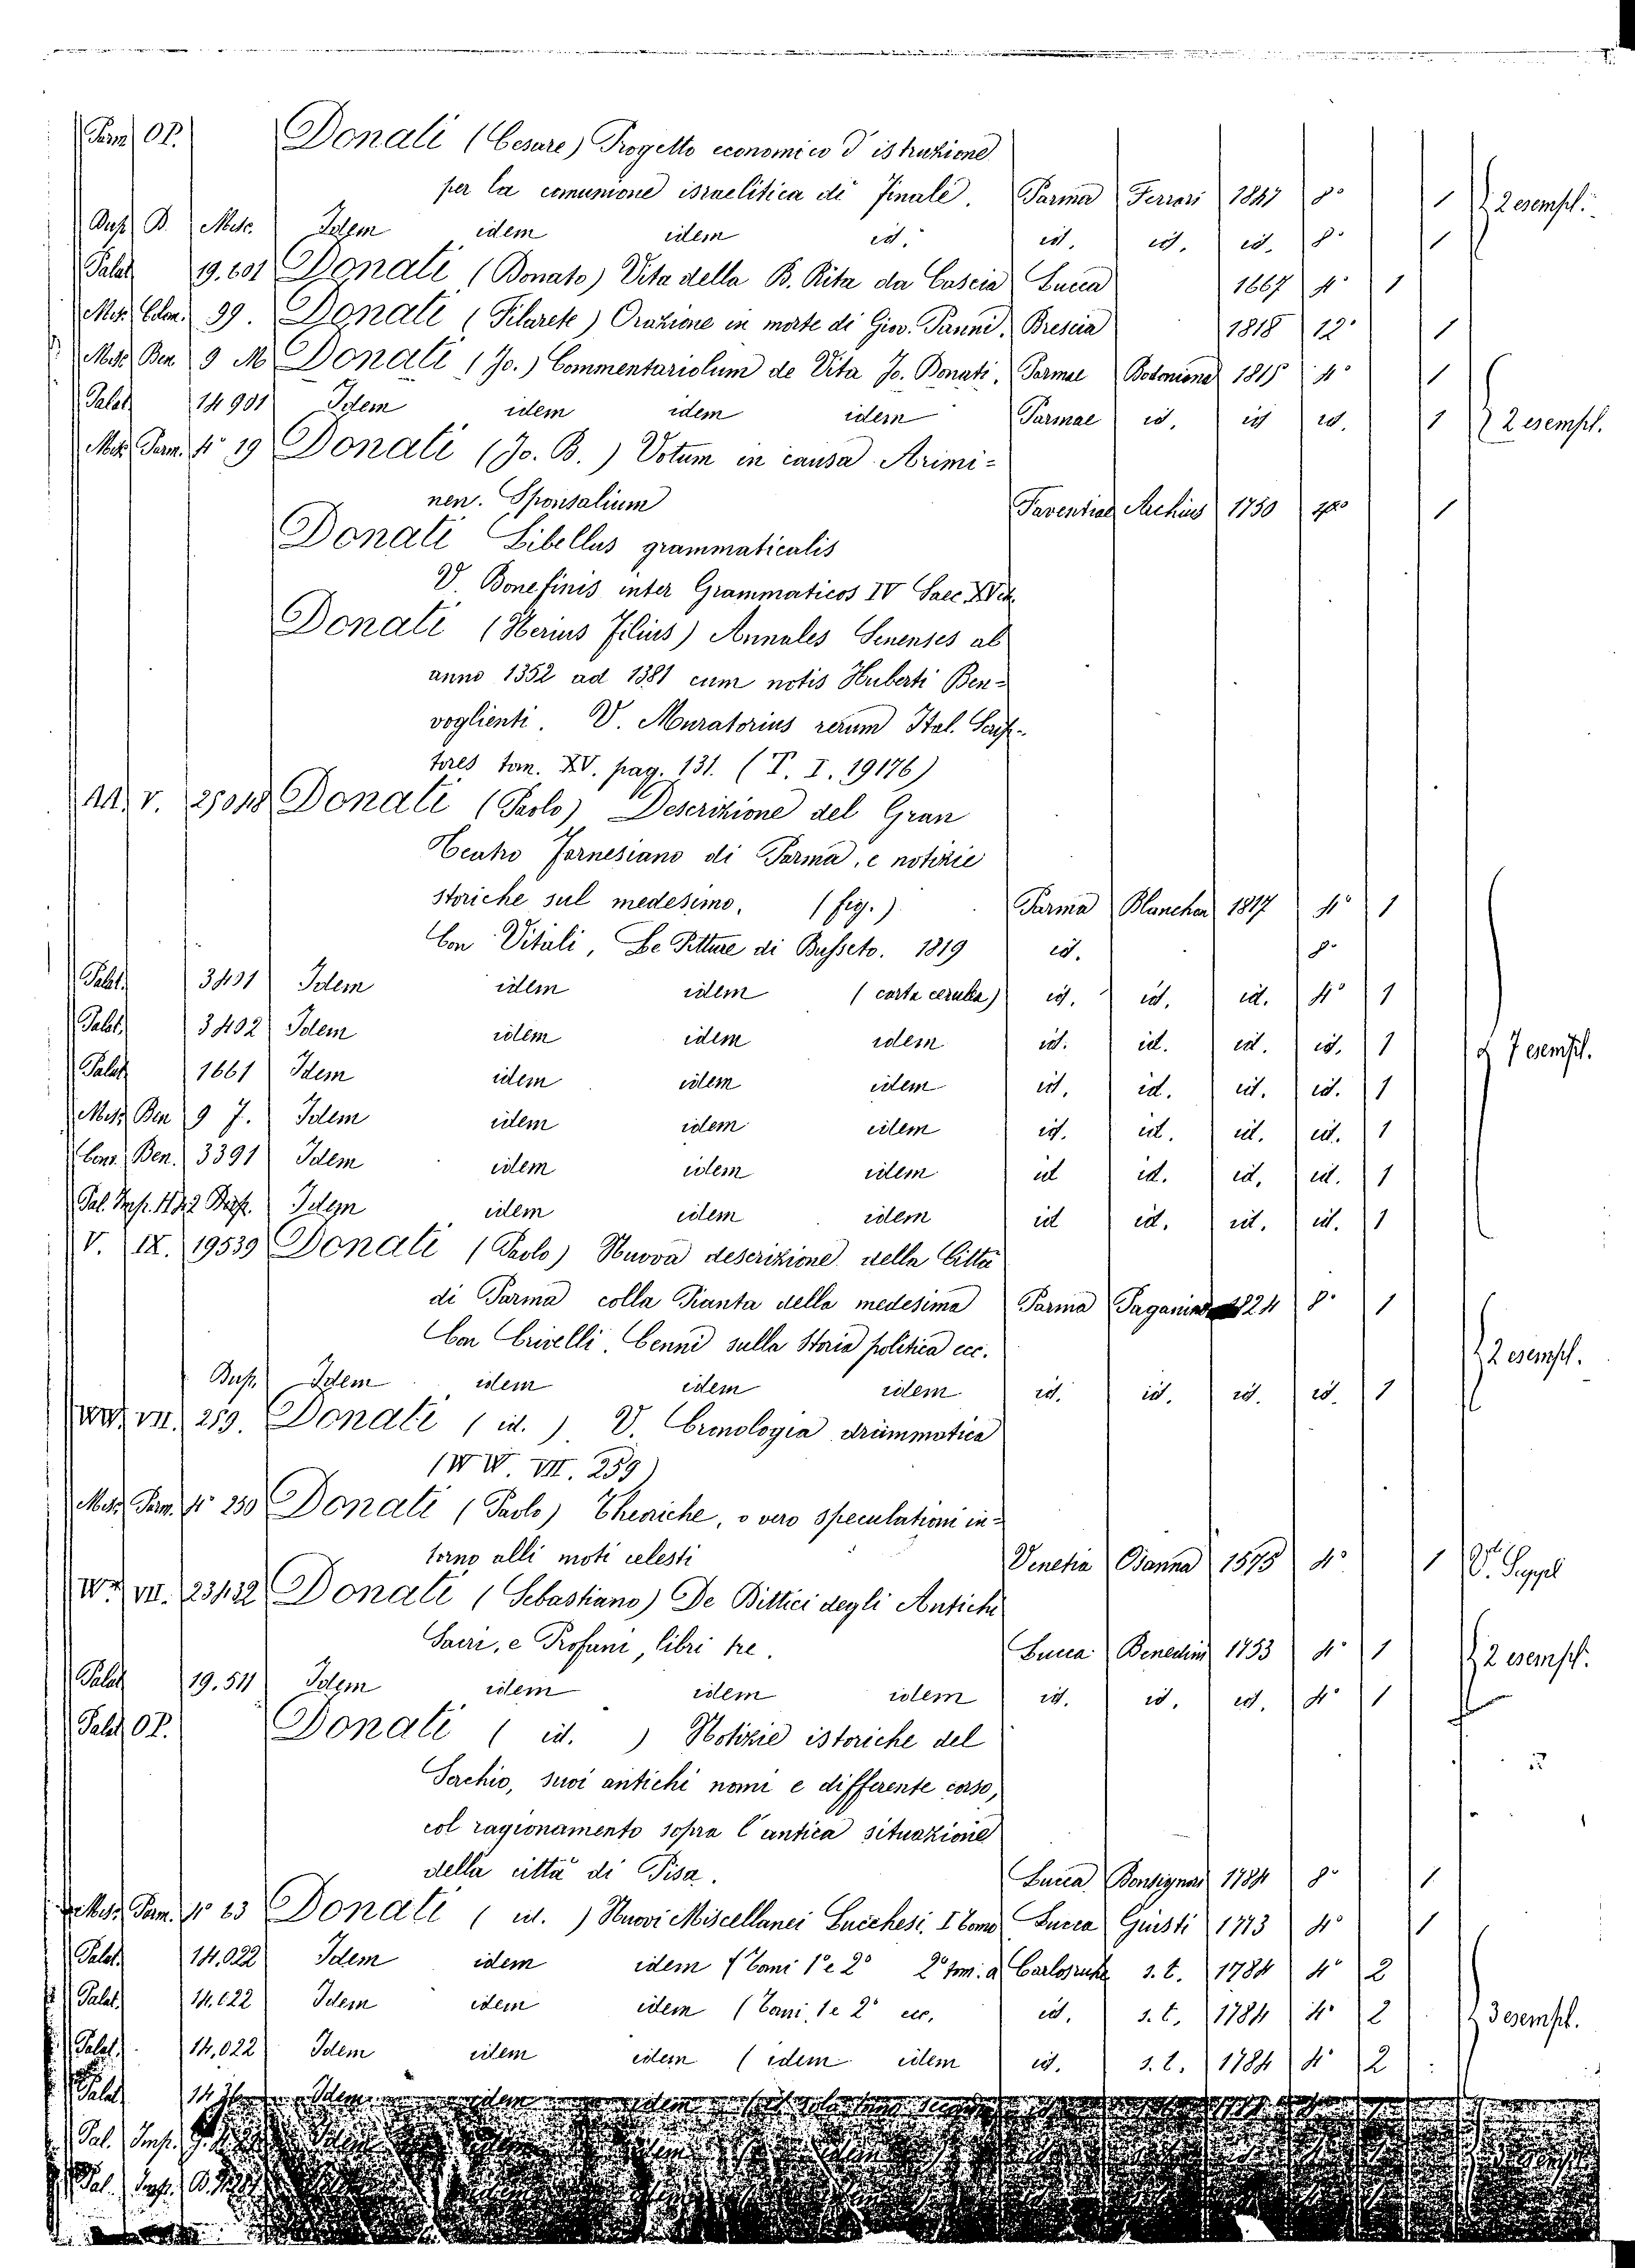 Parm. OP. Donati (Cesare) Progetto economico d'istruzione
per la comunione israelitica di Finale. Parma Ferrari 1847 8° 1 2 esempl.
Dup. B. Misc. Idem idem idem id. id. id. id. 8° 1
Palat. 19.601 Donati (Donato) Vita della B. Rita da Cascia Lucca 1667 4° 1
Misc. Colom. 99. Donati (Filarete) Orazione in morte di Giov. Panni. Brescia 1818 12° 1
Misc. Ben 9 M Donati (Jo.) Commentariolum de Vita Jo. Donati. Parmae Bodoniana 1815 4° 1
Palat. 14901 Idem idem idem idem Parmae id. id id. 1 2 esempl.
Misc. Parm. 4° 19 Donati (Jo. B.) Votum in causa Arimi=
nen. Sponsalium Faventiae Archius 1750 1
Donati Libellus grammaticalis
V. Bonefinis inter Grammaticos IV Saec. XV
Donati (Nerius Filius) Annales Senenses ab
anno 1352 ad 1381 cum notis Huberti Ben=
voglienti. V. Muratorius rerum Ital. Scrip-
tores tom. XV. pag. 131. (T. I. 19176)
AA. V. 25048 Donati (Paolo) Descrizione del Gran
Teatro Farnesiano di Parma, e notizie
storiche sul medesimo. (fig.) Parma Blanchon 1817 4° 1
Con Vitali, Le Pitture di Busseto. 1819 id. 8°
Palat. 3401 Idem idem idem (carta cerulea) id. id. id. 4° 1
Palat. 3402 Idem idem idem idem id. id. id. id. 1 7 esempl.
Palat. 1661 Idem idem idem idem id. id. id. id. 1
Misc. Ben 9 7. Idem idem idem idem id. id. id. id. 1
Cons. Ben. 3391 Idem idem idem idem id id. id. id. 1
Pal. Imp. Idem idem idem idem id id. id. id. 1
V. IX. 19539 Donati (Paolo) Nuova descrizione della Città
di Parma colla Pianta della medesima Parma Paganino 1824 8° 1
Con Crivelli. Cenni sulla Storia politica ecc. 2 esempl.
Dup. Idem idem idem idem id. id. id. id. 1
WW. VII. 259. Donati (id.) V. Cronologia drammatica
(WW. VII. 259)
Misc. Parm. 4° 230 Donati (Paolo) Theoriche, o vero speculationi in=
torno alli moti celesti Venetia Osanna 1575 4° 1 V. Suppl
W* VII. 23432 Donati (Sebastiano) De Dittici degli Antichi
Sacri, e Profani, libri tre. Lucca Benedini 1753 4° 1 2 esempl.
Palat. 19.511 Idem idem idem idem id. id. id. 4° 1
Palat. OP. Donati (id.) Notizie istoriche del
Serchio, suoi antichi nomi e differente corso,
col ragionamento sopra l'antica situazione
della città di Pisa. Lucca Bonsignori 1784 8° 1
Misc. Parm. 4° 63 Donati (id.) Nuovi Miscellanei Lucchesi. I tomo Lucca Giusti 1773 4° 1
Palat. 14.022 Idem idem idem (Tomi 1° e 2° 2° tom. a Carlosruhe s.t. 1784 4° 2
Palat. 14.022 Idem idem idem (Tomi 1 e 2° ecc. id. s.t. 1784 4° 2 3 esempl.
Palat. 14,022 Idem idem idem (idem idem id. s.t. 1784 4° 2
Palat. Idem idem idem
Pal. Imp. Idem idem idem
Pal. Imp.